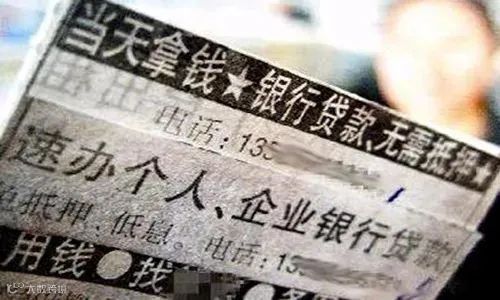 当天拿钱★银行贷款、无需抵押★
电话:133
速办个人、企业银行贷款
抵押、低息。电话:13
用钱●找
大数跨境